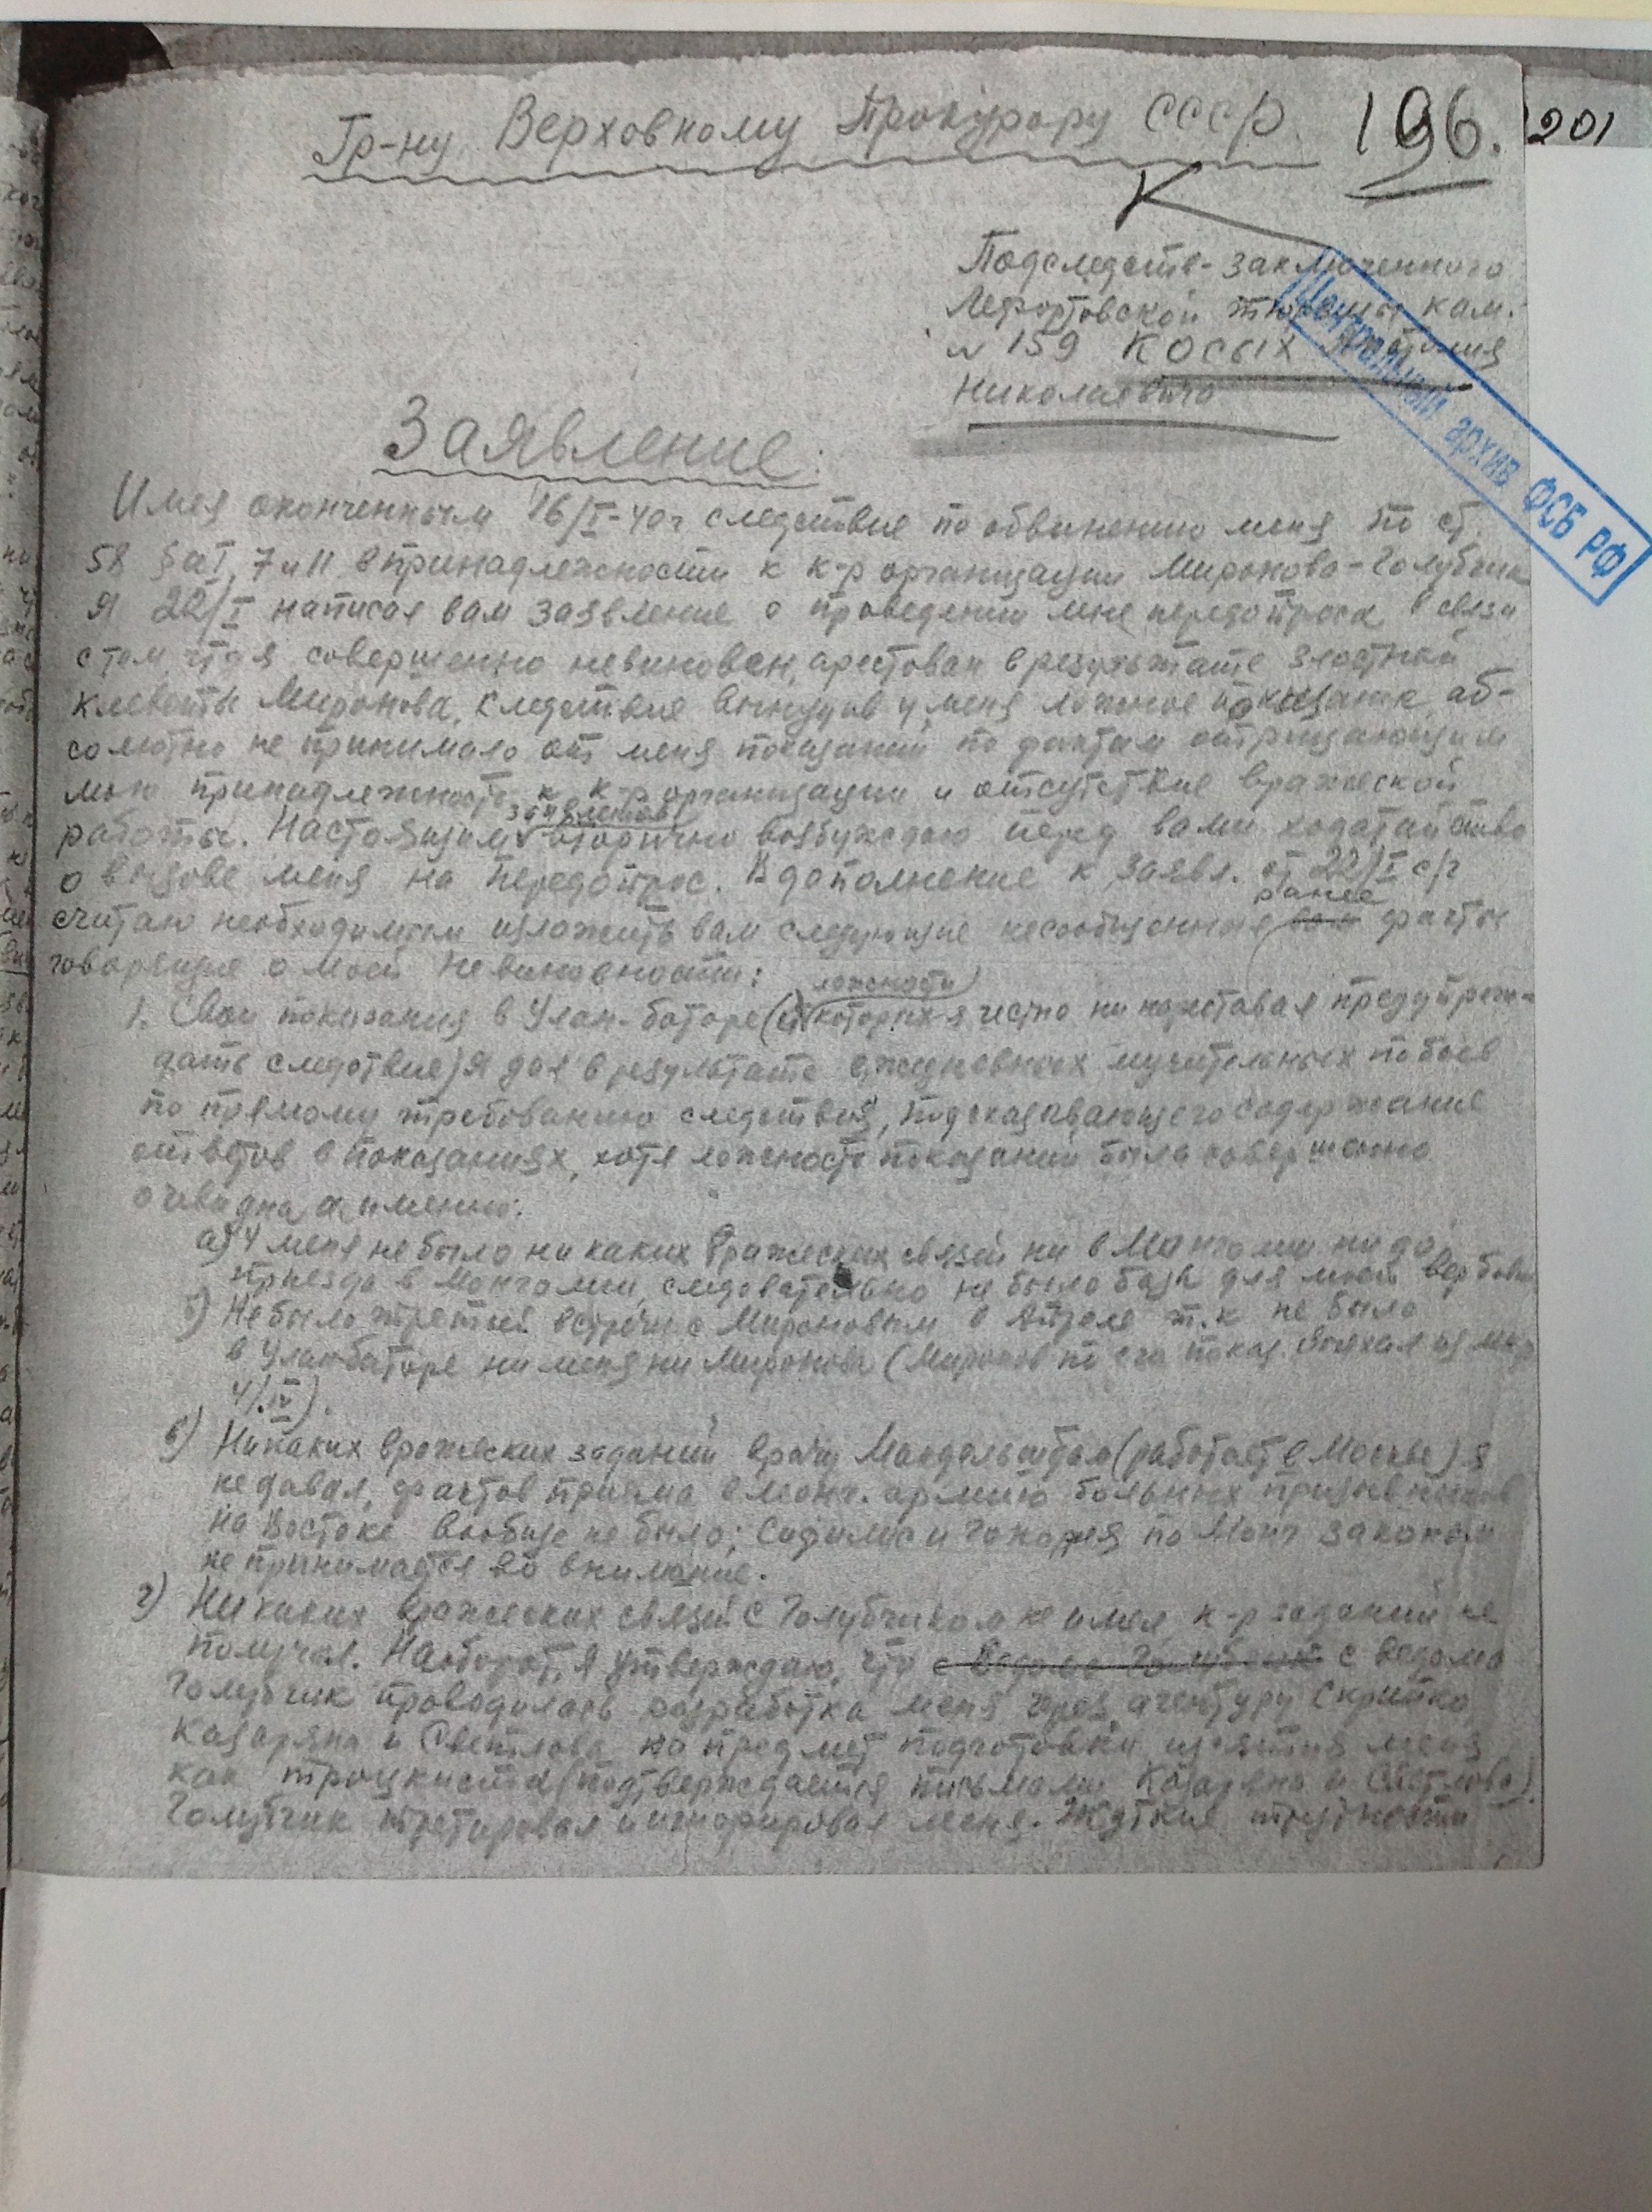 Гр-ну Верховному Прокурору СССР. 196. 201
К
Подследств-заключенного
Лефортовской тюрьмы кам.
№ 159 Косых Анатолия
Николаевича
Центральный архив ФСБ РФ
Заявление:
Имея оконченным 16/I-40г следствие по обвинению меня по ст.
58 § 7 и 11 в принадлежности к к-р организации Миронова-Голубчик
Я 22/I написал вам заявление о проведении мне передопроса в связи
с тем, что я совершенно невиновен, арестован в результате злостной
клеветы Миронова. Следствие вынудив у меня ложное показание, аб-
солютно не принимало от меня показаний по фактам отрицающим
мою принадлежность к к-р организации и отсутствие вражеской
заявлением
работы. Настоящим вторично возбуждаю перед вами ходатайство
о вызове меня на передопрос. В дополнение к заявл. от 22/I с/г
ранее
считаю необходимым изложить вам следующие несообщенные вам факты
говорящие о моей невиновности:
ложности
1. Свои показания в Улан-баторе (о которых я честно не переставал предупреж-
дать следствие) я дал в результате ежедневных мучительных побоев
по прямому требованию следствия, подсказывающего содержание
ответов в показаниях, хотя ложность показаний была совершенно
очевидна, а именно:
а) У меня не было никаких вражеских связей ни в Монголии ни до
приезда в Монголию, следовательно не было базы для моей вербовки
б) Не было третьей встречи с Мироновым в апреле т.к не было
в Уланбаторе ни меня ни Миронова (Миронов по его показ. выехал из
4/IV).
в) Никаких вражеских заданий врачу Мандельштам (работает в Москве) я
не давал, фактов приема в монг. армию больных призывников
на Востоке вообще не было; Сифилис и гонорея по Монг законам
не принимается во внимание.
г) Никаких вражеских связей с Голубчиком не имел, к-р заданий не
получал. Наоборот, я утверждаю, что с ведома Голубчик с ведома
Голубчик проводилась разработка меня через агентуру Скрипко,
Казаряна и Светлова на предмет подготовки изъятия меня
как троцкиста (подтверждается письмами Казаряна и Светлова).
Голубчик третировал и игнорировал меня. Жуткие трудности